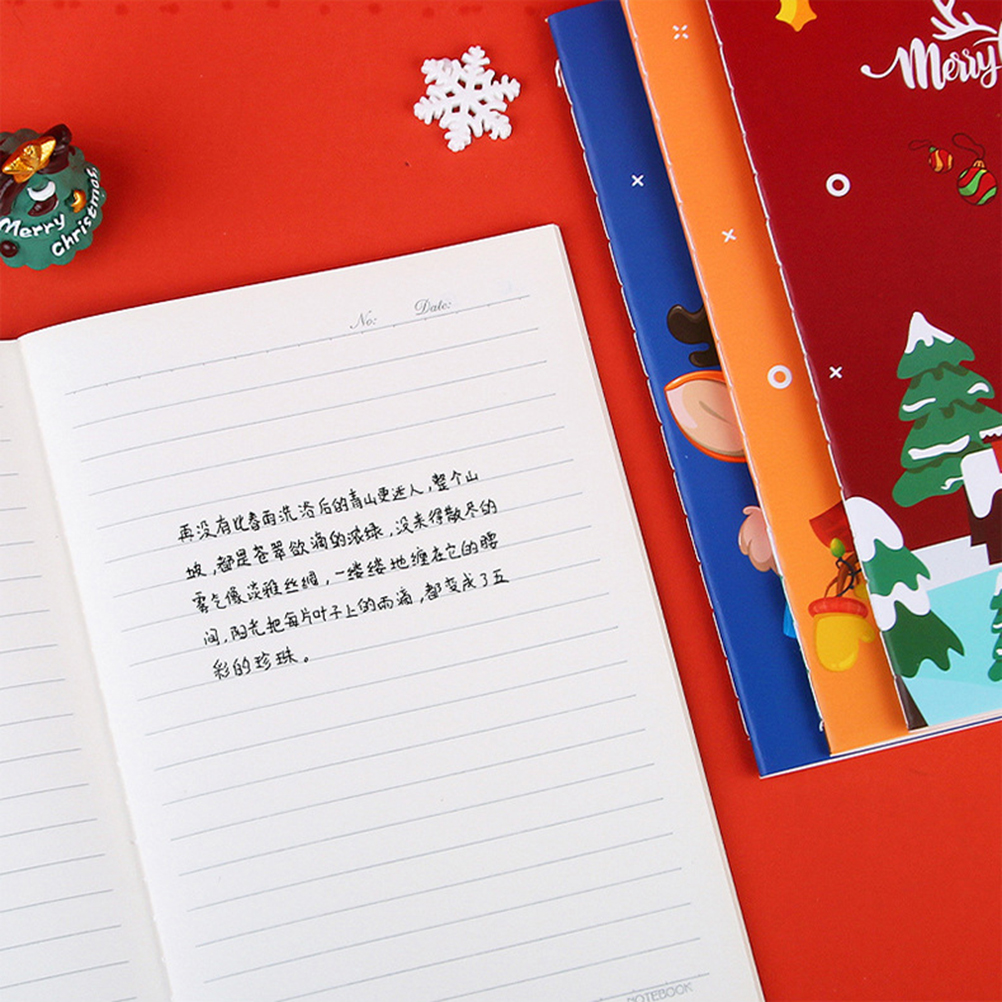 Merry
Merry
Christmas
No:
Date:
再没有比春雨洗浴后的青山更迷人，整个山
坡，都是苍翠欲滴的浓绿，没来得散尽的
雾气像淡雅丝绸，一缕缕地缠在它的腰
间，阳光把每片叶子上的雨滴，都变成了五
彩的珍珠。
NOTEBOOK